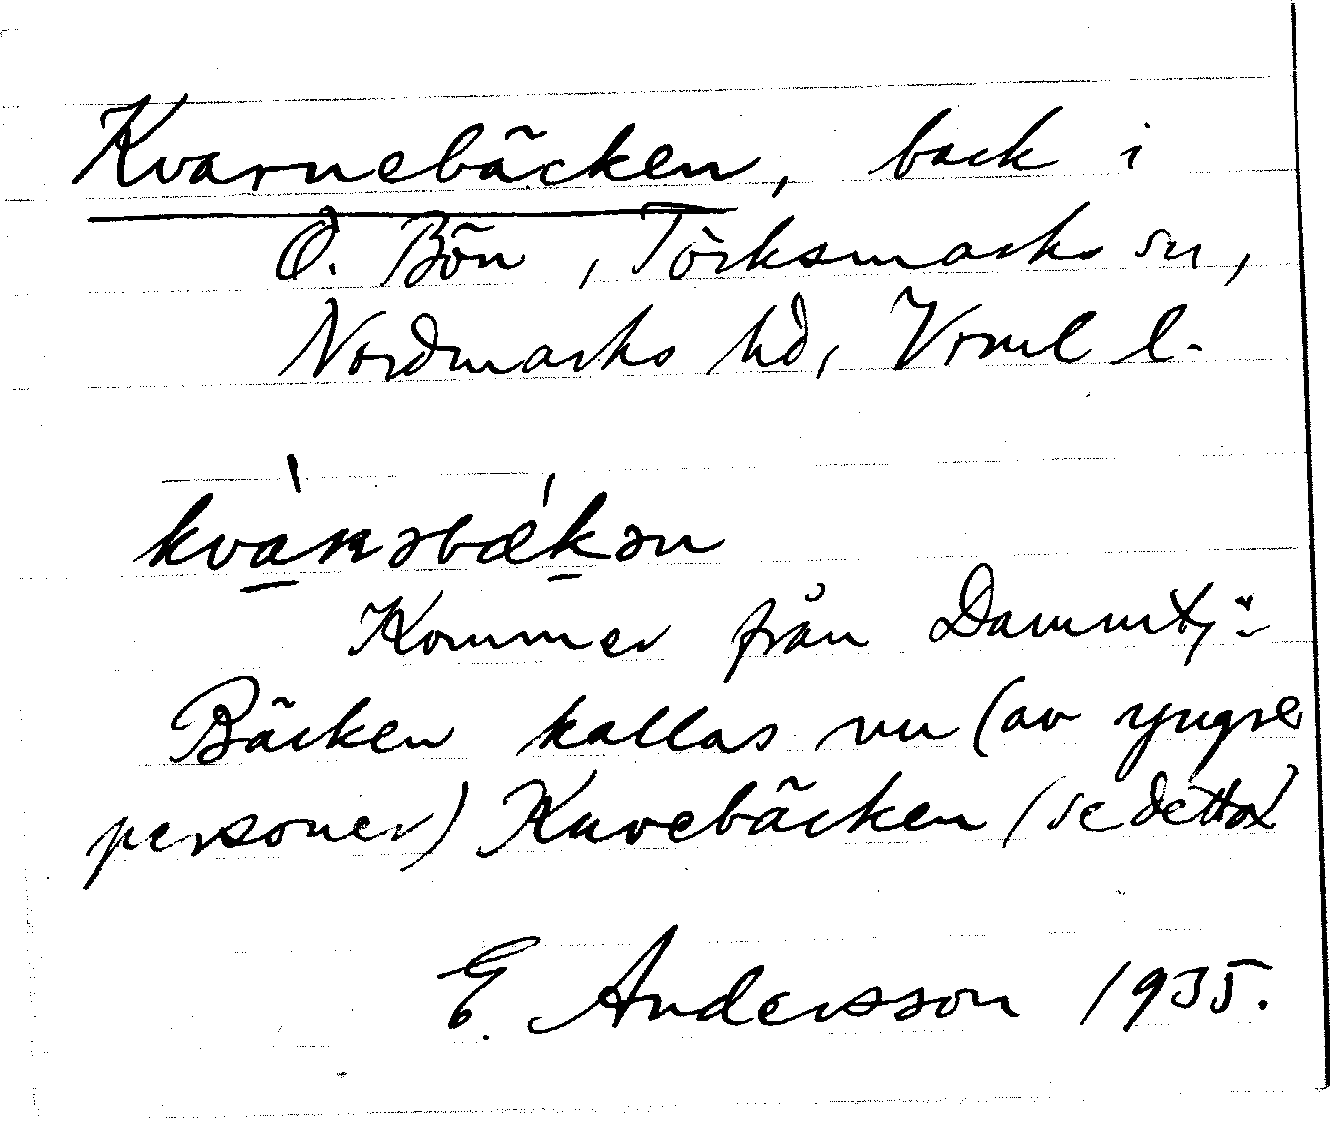 Kvarnebäcken, back i
Ö. Bön, Törksmarks sn,
Nordmarks hd, Vrml l.
kvànəbǽkən
Kommer från Dammtj:
Bäcken kallas nu (av yngre
personer) Kuvebäcken (se detta)
E. Andersson 1935.